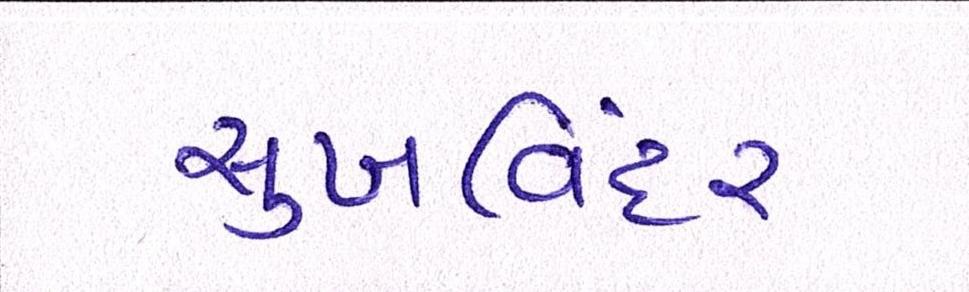 સુખવિંદર